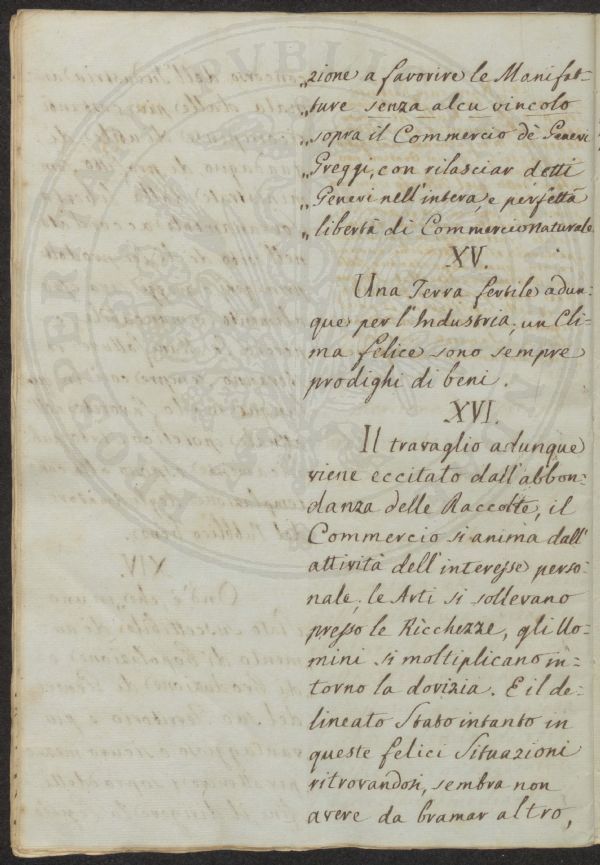 „zione a favorire le Manifat=
„ture senza alcu vincolo
„sopra il Commercio dè Generi
„Greggi, con rilasciar detti
„Generi nell'intera, e perfetta
„libertà di Commercio naturale.
XV.
Una Terra fertile adun=
que per l'Industria, un Cli=
ma felice sono sempre
prodighi di beni.
XVI.
Il travaglio adunque
viene eccitato dall'abbon=
danza delle Raccolte, il
Commercio si anima dall'
attività dell'interesse perso=
nale, le Arti si sollevano
presso le Ricchezze, gli Uo=
mini si moltiplicano in=
torno la dovizia. E il de=
lineato Stato intanto in
queste felici Situazioni
ritrovandosi, sembra non
avere da bramar altro,